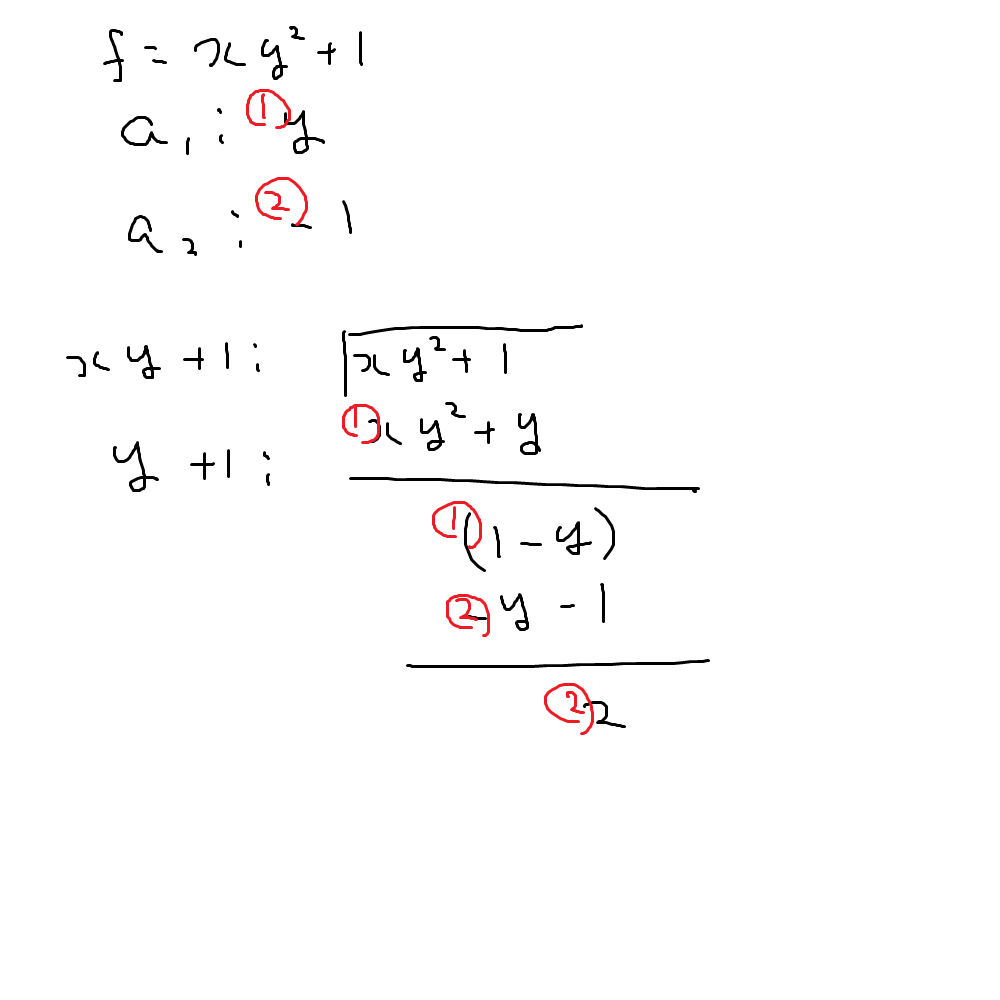 f = xy² + 1
a₁ : ① y
a₂ : ② - 1
xy + 1 : xy² + 1
① xy² + y
y + 1 :
① (1 - y)
② - y - 1
② 2